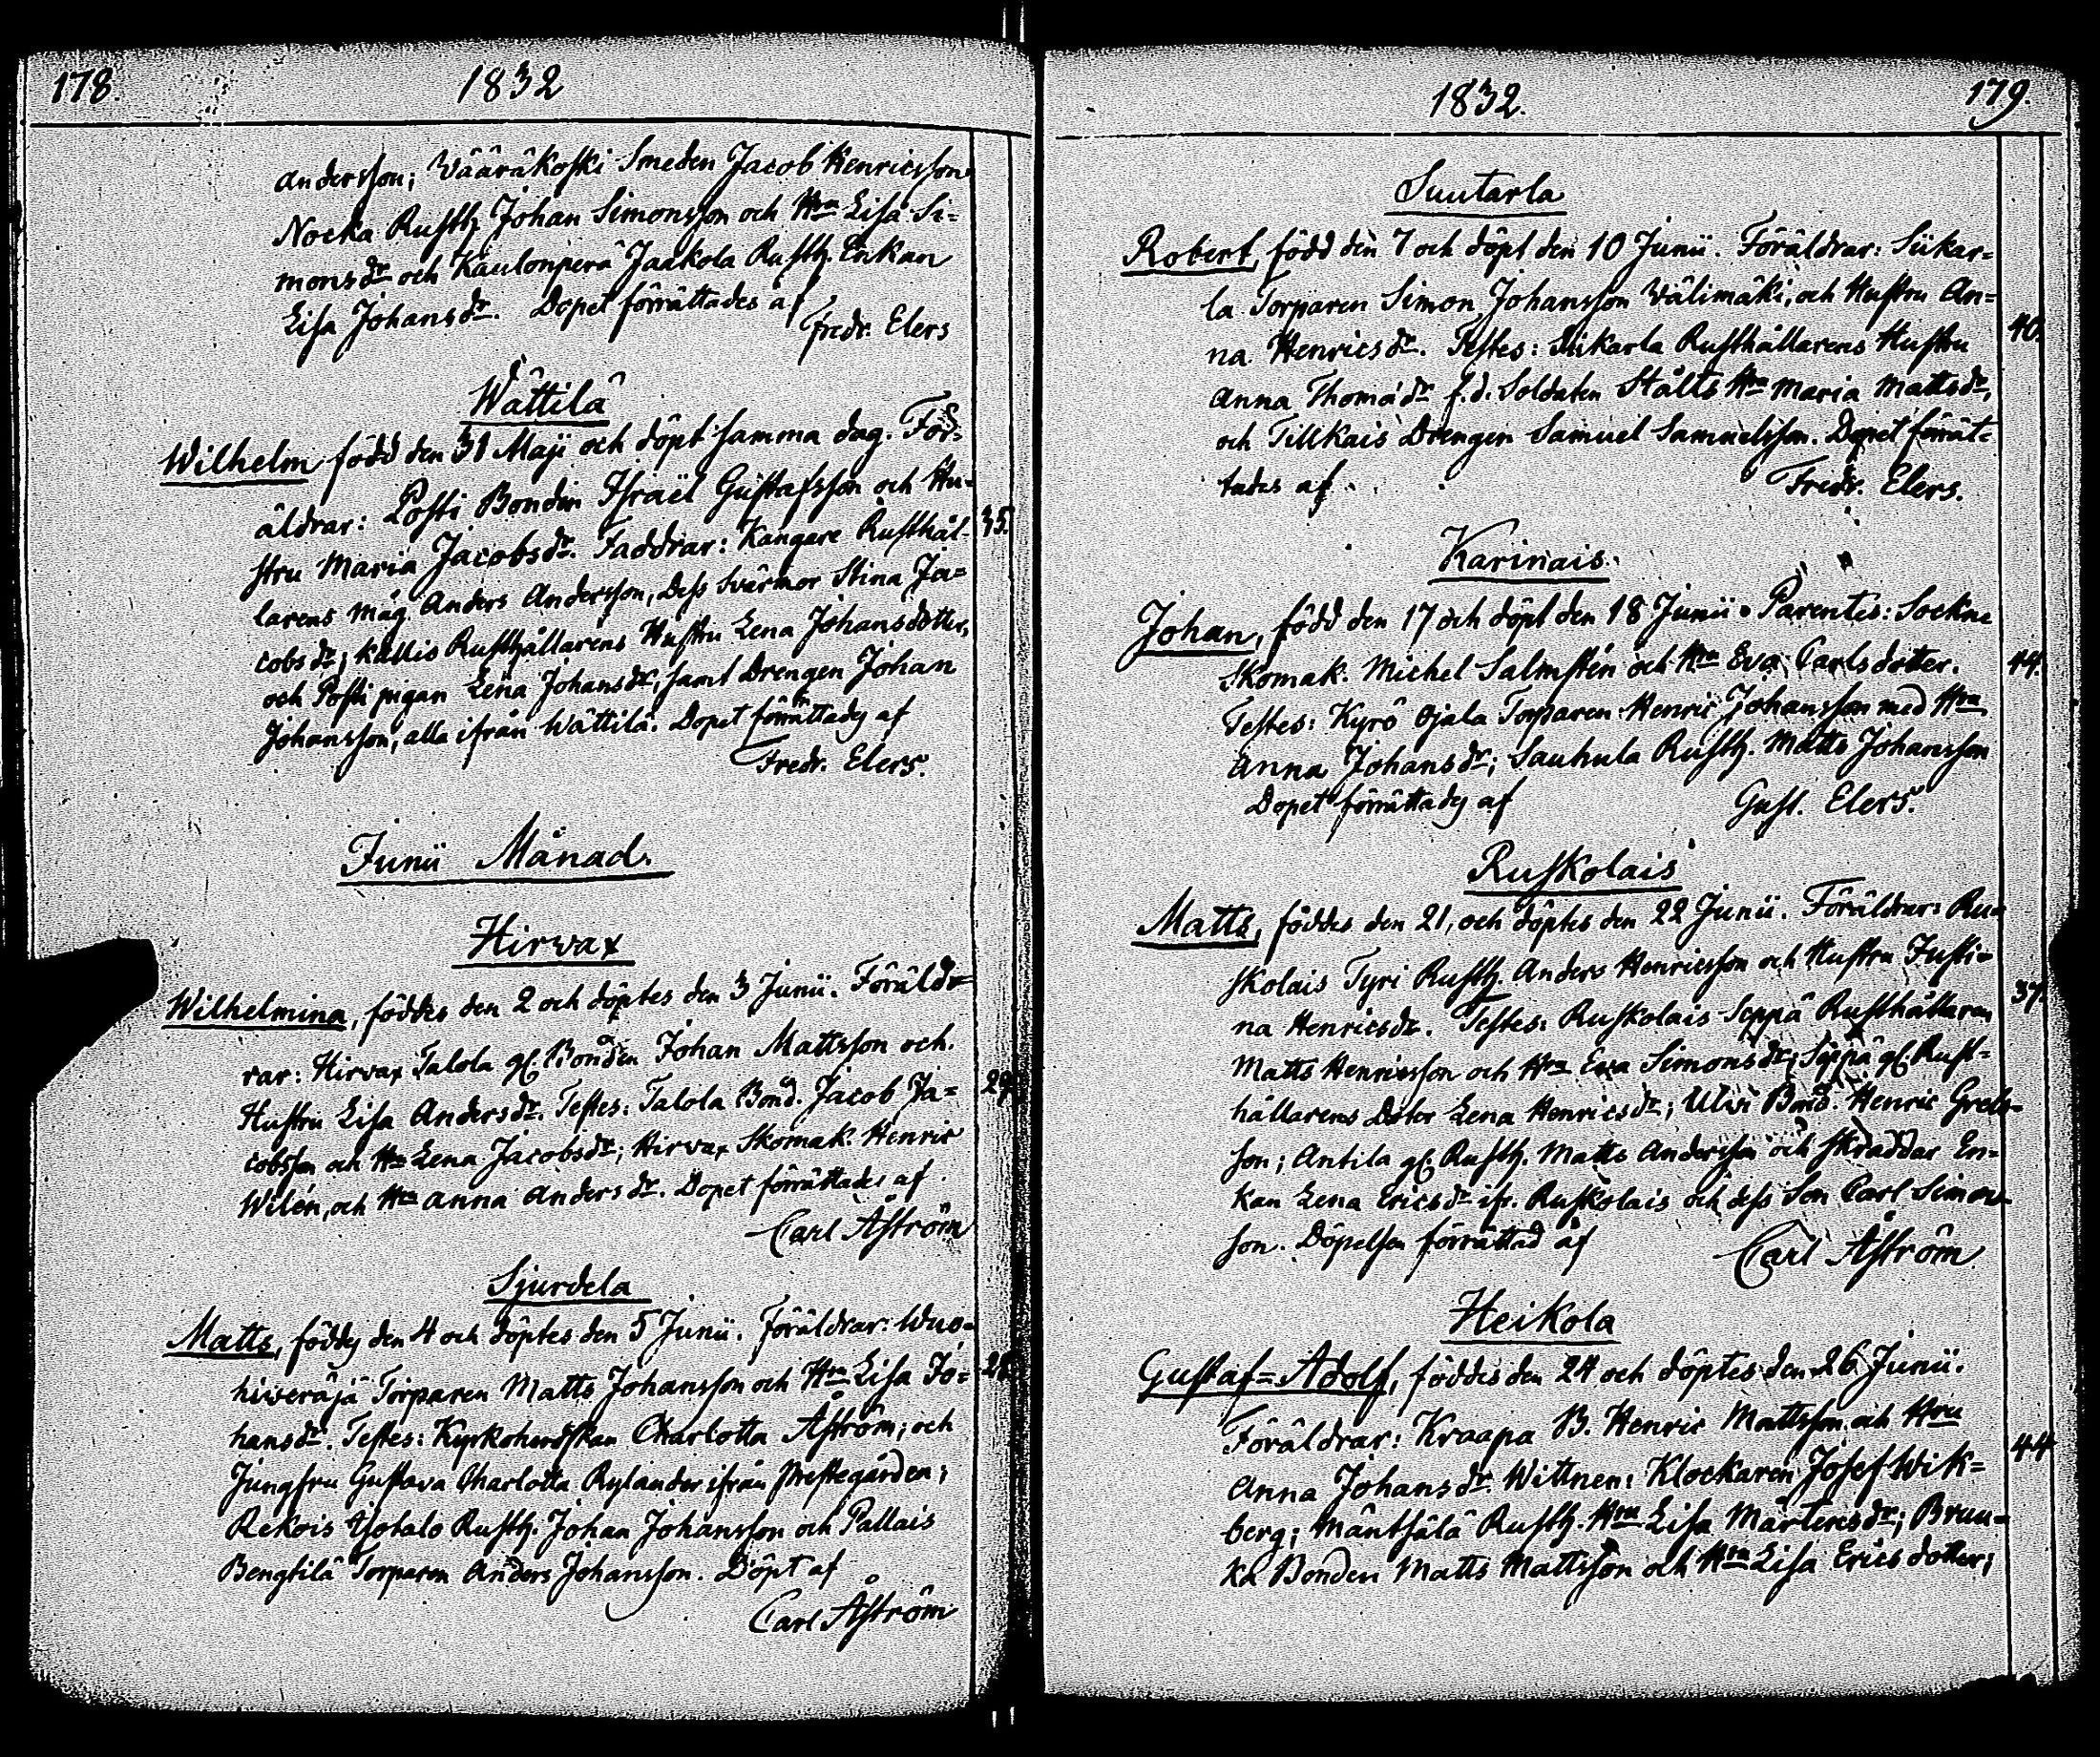 178.
1832
Andersson; Wääräkoski Smeden Jacob Henricsson
Nocka Rusth. Johan Simonsson och Hru Lisa Si=
monsdr och Kaulonperä Jaakola Rusth. Enkan
Lisa Johansdr. Dopet förrättades af
Fredr. Elers
Wättilä
Wilhelm född den 31 Maji och döpt samma dag. För=
äldrar: Posti Bonden Israël Gustafsson och Hu=
stru Maria Jacobsdr. Faddrar: Kangare Rusthål=
35.
larens måg Anders Andersson, Dess Svärmor Stina Ja=
cobsdr; Kallis Rusthållarens Hustru Lena Johansdotter,
och Posti pigan Lena Johansdr, samt Drengen Johan
Johansson, alla ifrån Wättilä. Dopet förrättades af
Fredr. Elers.
Junii Månad.
Hirvax
Wilhelmina, föddes den 2 och döptes den 3 Junii. Föräld=
rar: Hirvax Talola gl. Bonden Johan Mattsson och
Hustru Lisa Andersdr. Testes: Talola Bond. Jacob Ja=
29.
cobsson och Hru Lena Jacobsdr; Hirvax Skomak. Henric
Wilén, och Hru Anna Andersdr. Dopet förrättades af
Carl Åström
Sjurdela
Matts, föddes den 4 och döptes den 5 Junii. Föräldrar: Wuo=
hiweräjä Torparen Matts Johansson och Hru Lisa Jo=
28.
hansdr. Testes: Kyrkoherdskan Charlotta Åström; och
Jungfru Gustava Charlotta Rylander ifrån Prestegården;
Rekois Ylotalo Rusth. Johan Johansson och Pallais
Bengtilä Torparen Anders Johansson. Döpt af
Carl Åström
1832.
179.
Suutarla
Robert, född den 7 och döpt den 10 Junii. Föräldrar: Siikar=
la Torparen Simon Johansson Wälimäki, och Hustru An=
40.
na Henricsdr. Testes: Siikarla Rusthållarens Hustru
Anna Thomädr f.d. Soldaten Stålts Hru Maria Mattsdr,
och Tillkais Drengen Samuel Samuelsson. Dopet förrät=
tades af
Fredr. Elers.
Karinais.
Johan, född den 17 och döpt den 18 Junii. Parentes: Sockne
Skomak. Michel Salmstén och Hru Eva Carlsdotter.
44.
Testes: Kyrö Ojala Torparen Henric Johansson med Hru
Anna Johansdr; Sauhula Rusth. Matts Johansson
Dopet förrättades af
Gust. Elers.
Ruskolais
Matts, föddes den 21, och döptes den 22 Junii. Föräldrar: Ru=
skolais Tyri Rusth. Anders Henricsson och Hustru Justi=
37.
na Henricsdr. Testes: Ruskolais Seppä Rusthållaren
Matts Henricsson och Hru Eva Simonsdr; Seppä gl. Rust=
hållarens Doter Lena Henricsdr; Ulvi Bond. Henric Grels=
son; Antila gl. Rusth. Matts Andersson och Skraddar En=
kan Lena Ericsdr ifr. Ruskolais och dess Son Carl Simons=
son. Döpelsen förrättad af
Carl Åström
Heikola
Gustaf=Adolf, föddes den 24 och döptes den 26 Junii.
Föräldrar: Kraapa B. Henric Mattsson och Hru
44
Anna Johansdr. Wittnen: Klockaren Josef Wik=
berg; Mäntsälä Rusth. Hru Lisa Mårtensdr; Bruu=
ka Bonden Matts Mattsson och Hru Lisa Ericsdotter;